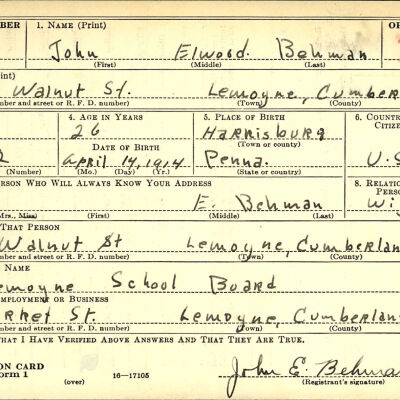 BER 1. NAME (Print) OR
John Elwood Behman
(First) (Middle) (Last)
rint)
Walnut St. Lemoyne, Cumber
mber and street or R. F. D. number) (Town) (County)
4. AGE IN YEARS 5. PLACE OF BIRTH 6. COUNTR
26 Harrisburg CITIZE
DATE OF BIRTH (Town or county)
2 April 14, 1914 Penna. U.S
(Number) (Mo.) (Day) (Yr.) (State or country)
ERSON WHO WILL ALWAYS KNOW YOUR ADDRESS 8. RELATIO
PERSO
E. Behman Wi
Mrs., Miss) (First) (Middle) (Last)
THAT PERSON
Walnut St Lemoyne, Cumberlan
mber and street or R. F. D. number) (Town) (County)
NAME
emoyne School Board
MPLOYMENT OR BUSINESS
arket St. Lemoyne, Cumberland
mber and street or R. F. D. number) (Town) (County)
HAT I HAVE VERIFIED ABOVE ANSWERS AND THAT THEY ARE TRUE.
ON CARD
orm 1 John E. Behma
(over) 16—17105 (Registrant's signature)